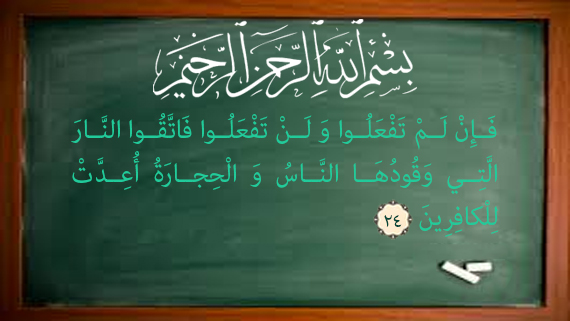 بسم الله الرحمن الرحيم
فَإِنْ لَمْ تَفْعَلُوا وَ لَنْ تَفْعَلُوا فَاتَّقُوا النَّارَ
الَّتِي وَقُودُهَا النَّاسُ وَ الْحِجارَةُ أُعِدَّتْ
لِلْكافِرِينَ ٢٤